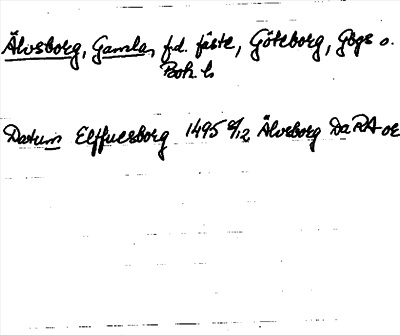 Älvsborg, Gamla, f.d. fäste, Göteborg, Gbgs o.
Boh. l.
Datum Elffuesborg 1495 6/12 Älvsborg Da RA or